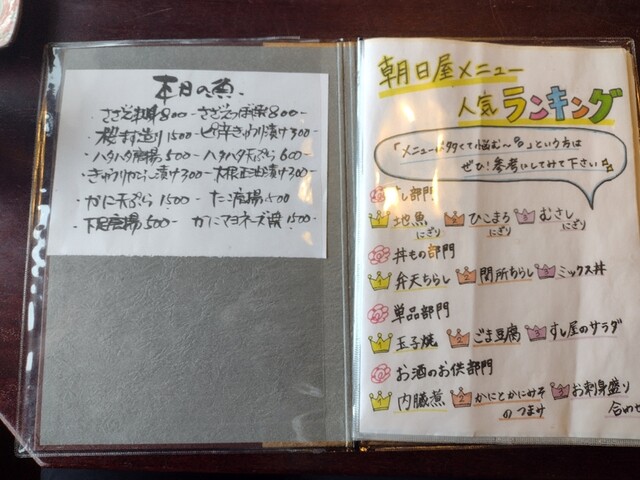 本日の魚
さざえ刺身800- さざえつぼ焼800-
桜鯛造り1500- ピリ辛きゅうり漬け300-
ハタハタ唐揚500- ハタハタ天ぷら600-
きゅうりからし漬け300- 大根正油漬け300-
かに天ぷら1500- たこ唐揚500
下足唐揚500- かにマヨネーズ焼1500-
朝日屋メニュー
人気ランキング
「メニューが多くて悩む〜」という方は
ぜひ!参考にしてみて下さい
すし部門
1 地魚にぎり 2 ひこまるにぎり 3 むさしにぎり
丼もの部門
1 弁天ちらし 2 関所ちらし 3 ミックス丼
単品部門
1 玉子焼 2 ごま豆腐 3 すし屋のサラダ
お酒のお供部門
1 内臓煮 2 かにとかにみそのつまみ 3 お刺身盛り合わせ